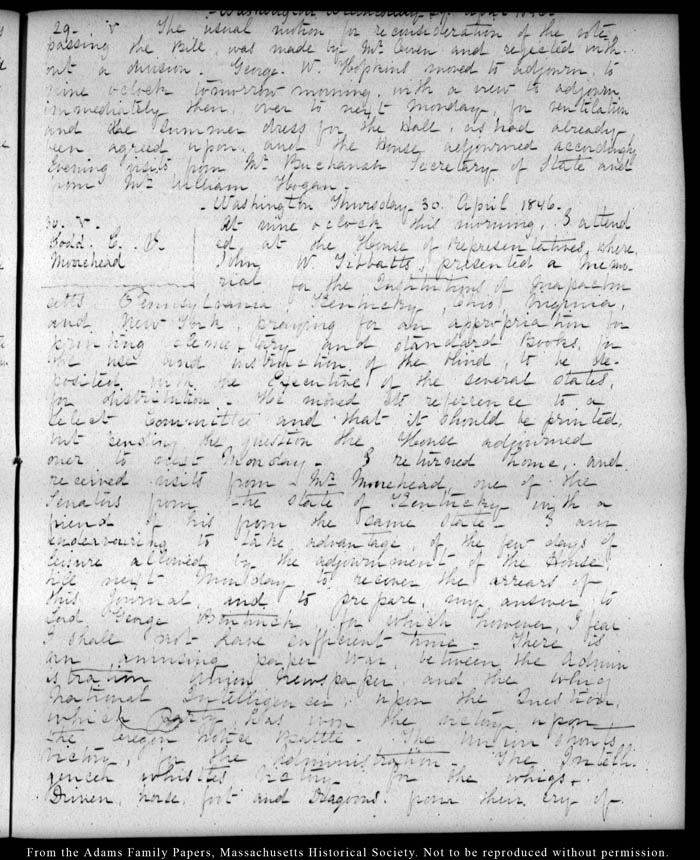 Washington Wednesday 29. April 1846.
29. V. The usual motion for reconsideration of the vote
passing the Bill, was made by Mr. Owen and rejected with-
out a division. George. W. Hopkins moved to adjourn, to
nine o'clock tomorrow morning, with a view to adjourn
immediately then, over to next Monday, for ventilation
and the summer dress for the Hall, as had already
been agreed upon, and the House adjourned accordingly
Evening visits from Mr. Buchanan Secretary of State and
from Mr. William Hogan.
Washington Thursday 30. April 1846.
30. V. At nine o'clock this morning, I attend
Todd. C. S. ed at the House of Representatives, where
Morehead John W. Tibbatts, presented a Memo-
rial for the Institutions of Massachu
setts Pennsylvania, Kentucky, Ohio, Virginia,
and New York, praying for an appropriation for
printing elementary and standard Books, for
the use and instruction of the blind, to be de-
posited with the Executive of the several states,
for distribution. He moved its referrence to a
select Committee and that it should be printed,
but pending the question the House adjourned
over to next Monday. I returned home, and
received visits from Mr. Morehead, one of the
Senators from the State of Kentucky with a
friend of his from the same State. I am
endeavouring to take advantage, of the few days of
leisure allowed by the adjournment of the House
till next Monday to recover the arrears of
this Journal and to prepare, my answer to
Lord George Bentinck, for which however, I fear
I shall not have sufficient time. There is
an amusing paper War, between the Admin
istration Union Newspaper, and the whig
National Intelligencer, upon the Question,
which party has won the victory upon
the Oregon Notice Battle. The Union shouts
victory, for the Administration. The Intelli
gencer whistles victory for the whigs.
Driven, horse, foot and Dragoons. from their cry of
From the Adams Family Papers, Massachusetts Historical Society. Not to be reproduced without permission.